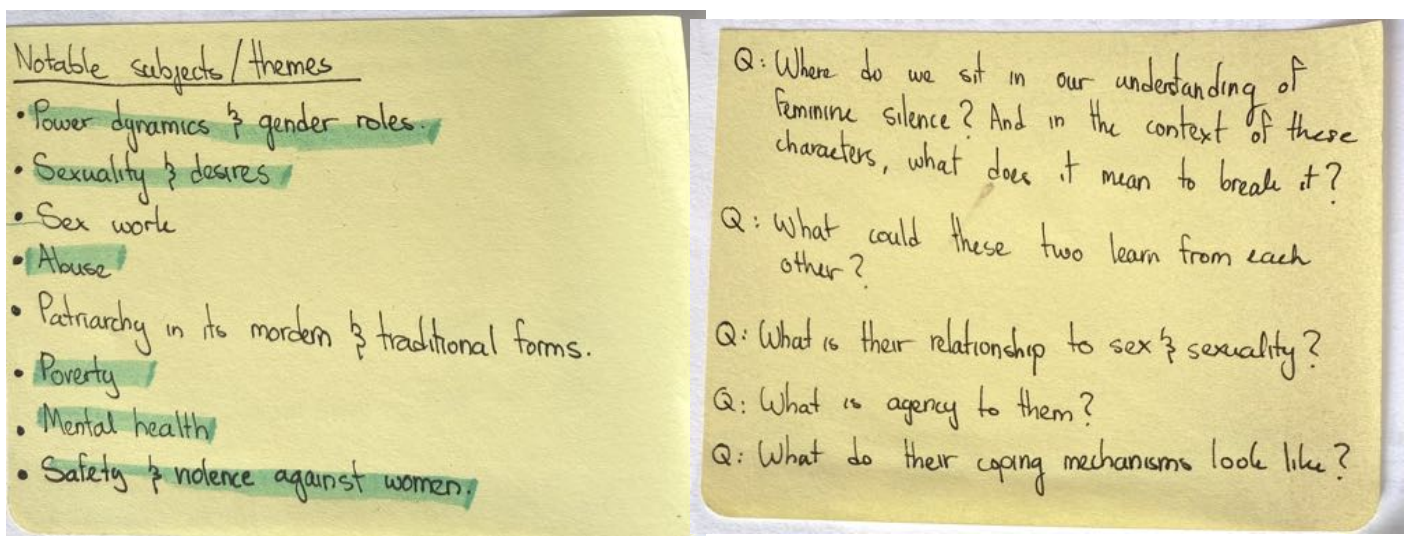 Notable subjects/themes
• Power dynamics & gender roles.
• Sexuality & desires
• Sex work
• Abuse
• Patriarchy in its mordern & traditional forms.
• Poverty
• Mental health
• Safety & violence against women.
Q: Where do we sit in our understanding of
feminine silence? And in the context of these
characters, what does it mean to break it?
Q: What could these two learn from each
other?
Q: What is their relationship to sex & sexuality?
Q: What is agency to them?
Q: What do their coping mechanisms look like?